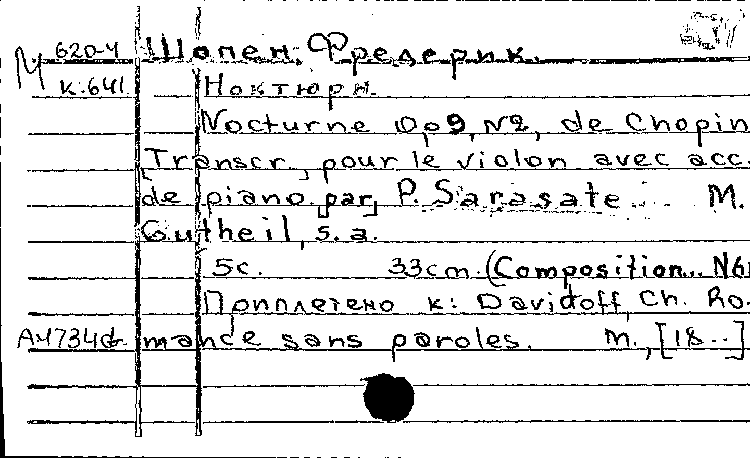 М 620-4 Шопен, Фредерик.
к.641 Ноктюрн.
Nocturne Op 9, N2, de Chopin
Transcr. pour le violon avec acc.
de piano par P. Sarasate... M.
Gutheil, s.a.
5c. 33cm. (Composition.. N6
Припплетено к: Davidoff, Ch. Ro-
mance sans paroles. M., [18..]